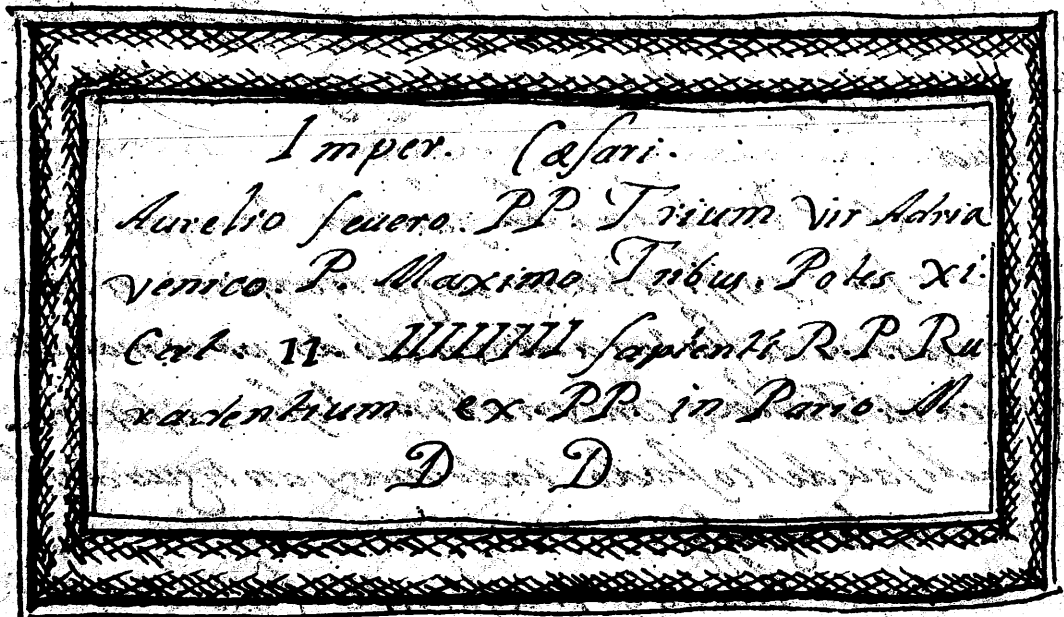 Imper. Cæsari.
Aurelio seuero. PP. Trium vir Adria
venico. P. Maximo Tribus. Potes xi.
Cert. 11. IIIIIIII. sapienti R. P. Ru
radentium. ex. PP. in Pario. M.
D D